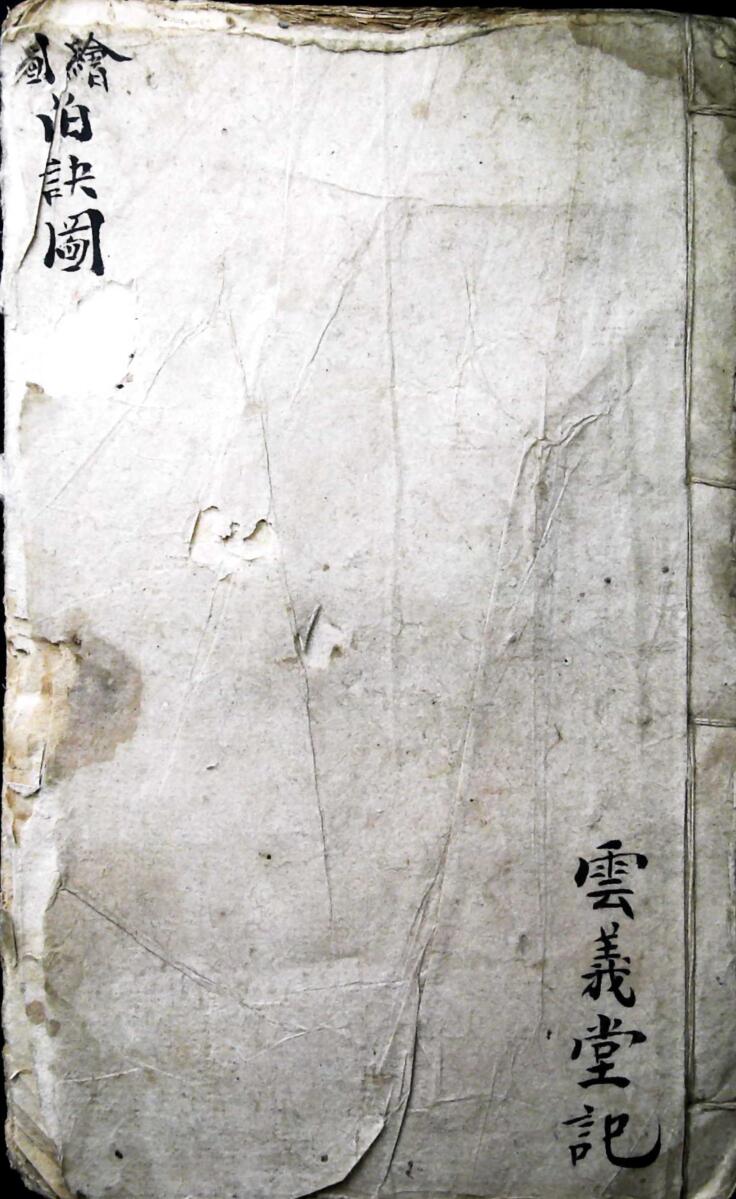 繪圖
泊訣圖
雲義堂記